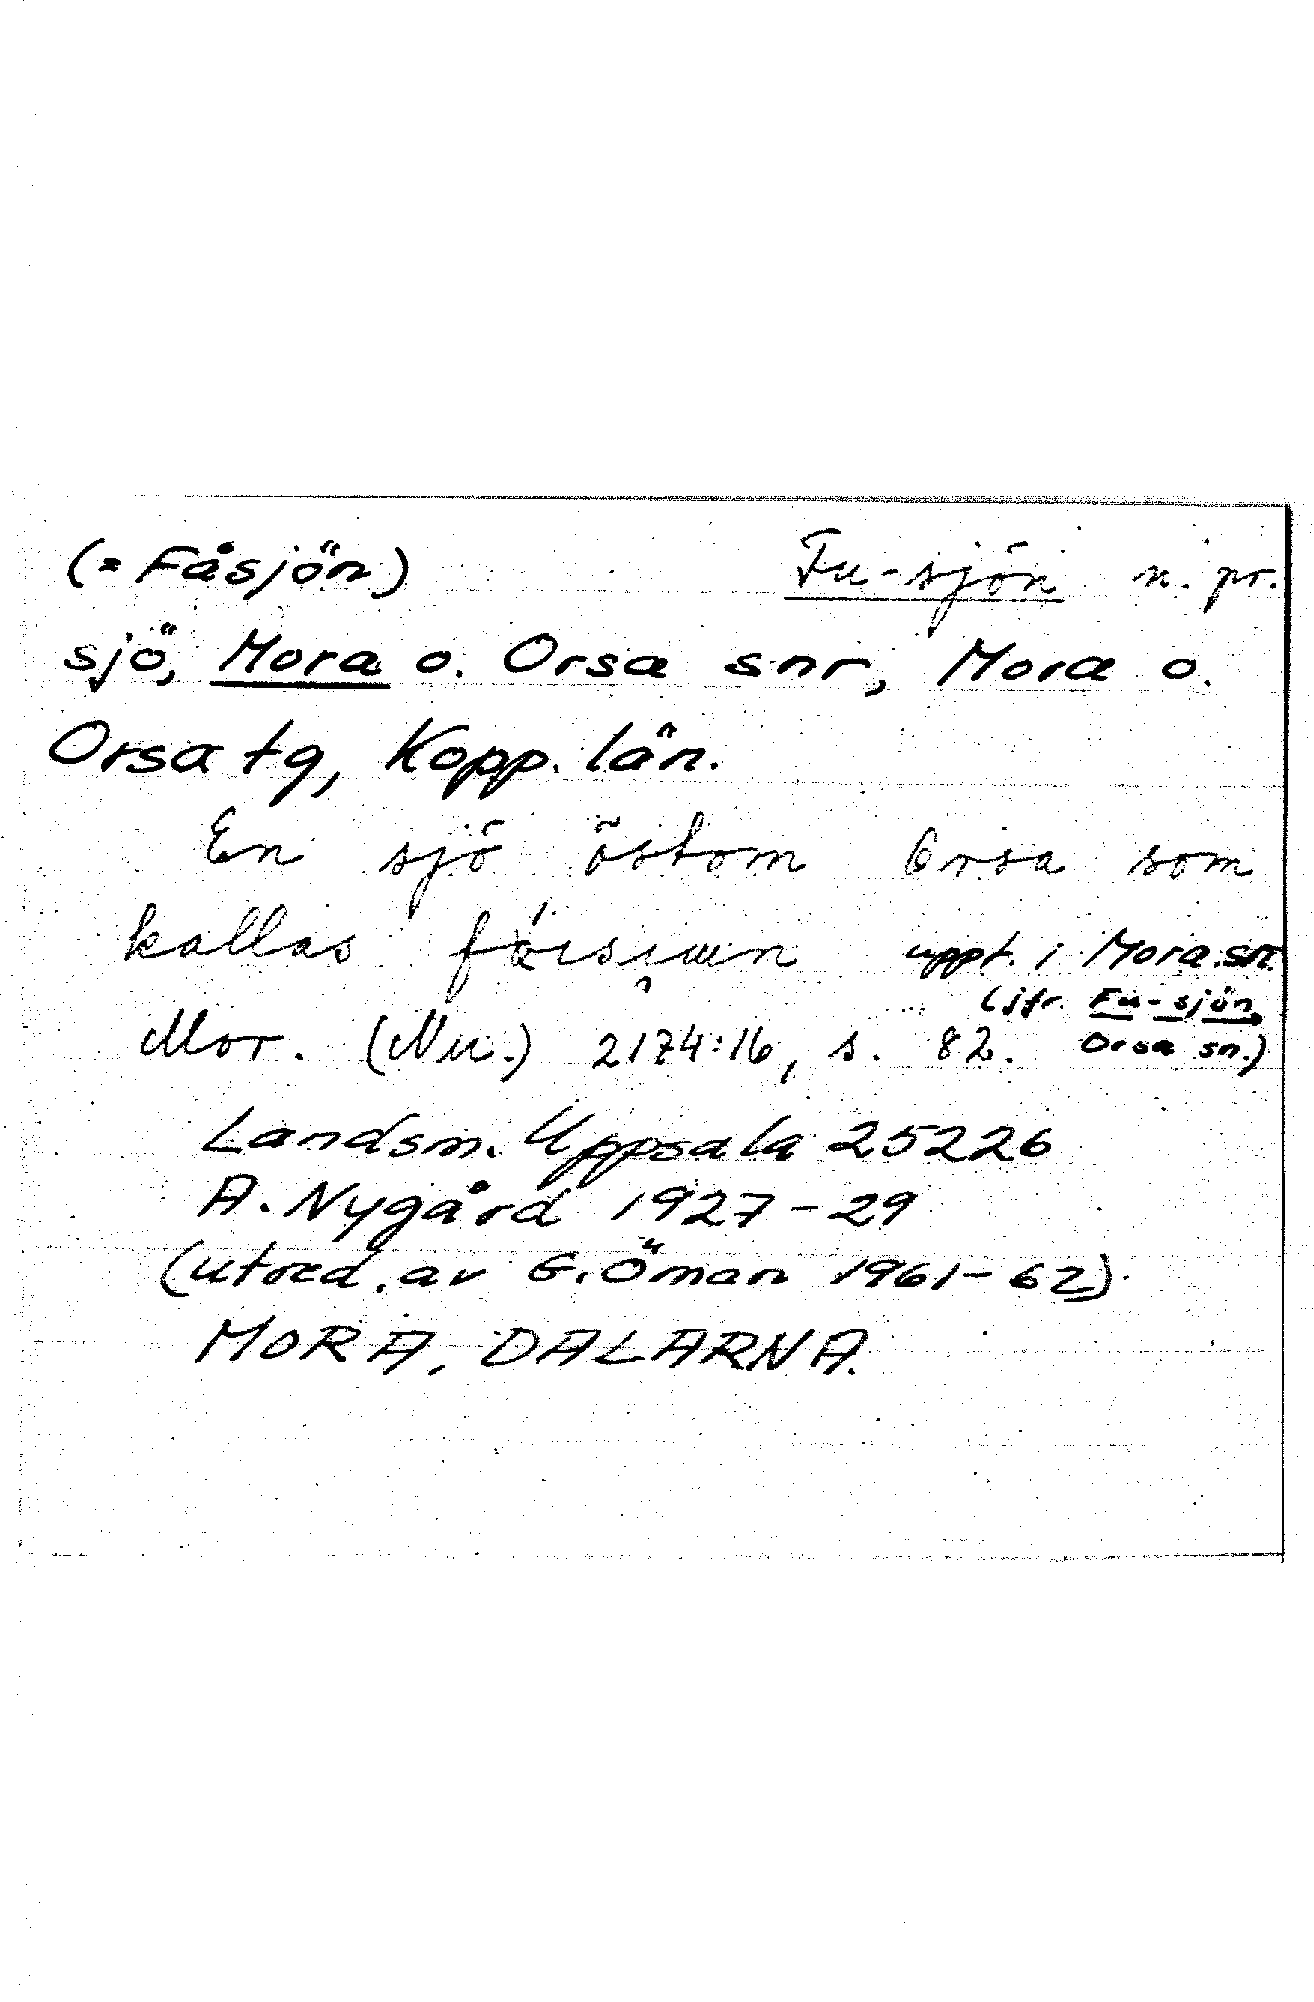 (= Fåsjön) Fu-sjön n. pr.
sjö, Mora o. Orsa snr, Mora o.
Orsa tg, Kopp. län.
En sjö östom Orsa som
kallas uppt. i Mora sn
(jfr. Fu-sjön,
Mor. (Nu.) 2174:16, s. 82. Orsa sn.)
Landsm. Uppsala 25226
A. Nygård 1927-29
(utred. av G. Öman 1961-62)
MORA, DALARNA.